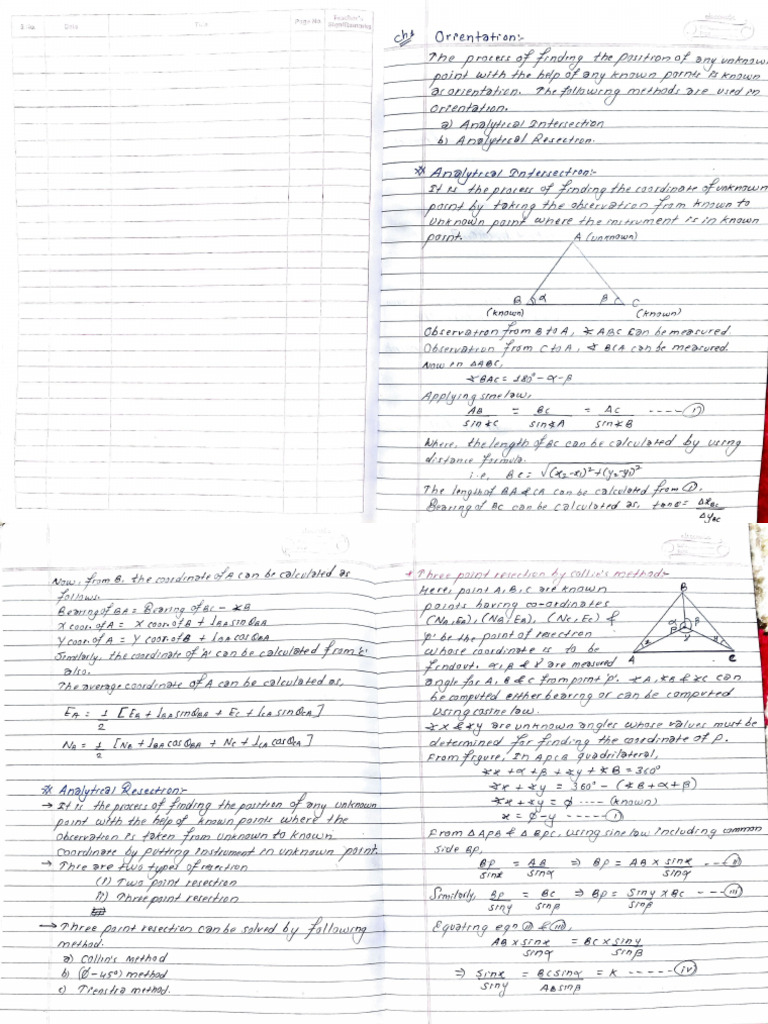 S.No.
Date
Title
Page No.
Ch:
Orientation:-
The process of finding the position of any unknown
point with the help of any known points is known
as orientation. The following methods are used in
orientation.
a) Analytical Intersection
b) Analytical Resection.
** Analytical Intersection:-
It is the process of finding the coordinate of unknown
point by taking the observation from known to
unknown point where the instrument is in known
point.
A (unknown)
B α β C
(known) (known)
Observation from B to A, ∡ ABC can be measured.
Observation from C to A, ∡ BCA can be measured.
Now in ΔABC,
∡BAC = 180° - α - β
Applying sine law,
AB/sin∡C = BC/sin∡A = AC/sin∡B ---- (i)
Where, the length of BC can be calculated by using
distance formula.
i.e, BC = √(x2-x1)²+(y2-y1)²
The length of BA & CA can be calculated from (i),
Bearing of BC can be calculated as, tanθ = ΔxBC/ΔyBC
Now, from B, the coordinate of A can be calculated as
follows.
Bearing of BA = Bearing of BC - ∡B
X coor. of A = X coor. of B + lBA sinθBA
Y coor. of A = Y coor. of B + lBA cosθBA
Similarly, the coordinate of 'A' can be calculated from 'C'
also.
The average coordinate of A can be calculated as,
EA = 1/2 [EB + lBA sinθBA + EC + lCA sinθCA]
NA = 1/2 [NB + lBA cosθBA + NC + lCA cosθCA]
** Analytical Resection:-
→ It is the process of finding the position of any unknown
point with the help of known points where the
observation is taken from unknown to known
coordinate by putting instrument in unknown point.
→ Thre are two types of resection
(i) Two point resection
ii) Three point resection
→ Three point resection can be solved by following
method.
a) Collin's method
b) (Ø-45°) method
c) Trenstra method.
* Three point resection by collin's method:-
Here, point A, B, C are known
points having co-ordinates
(NA, EA), (NB, EB), (NC, EC) &
'p' be the point of resection
whose coordinate is to be
findout. α, β & γ are measured
angle for A, B & C from point 'p'. ∡A, ∡B & ∡C can
be computed either bearing or can be computed
using cosine law.
∡X & ∡Y are unknown angles whose values must be
determined for finding the coordinate of P.
From figure, In APCB quadrilateral,
∡x + α + β + ∡y + ∡B = 360°
∡x + ∡y = 360° - (∡B + α + β)
∡x + ∡y = Ø ---- (known)
x = Ø - y ---- (i)
B
α β
γ
x y
A C
From ΔAPB & ΔBPC, using sine law including common
side BP,
BP/sinx = AB/sinα ⇒ BP = AB × sinx/sinα --- (ii)
Similarly, BP/siny = BC/sinβ ⇒ BP = siny/sinβ × BC --- (iii)
Equating eqn (ii) & (iii),
AB × sinx/sinα = BC × siny/sinβ
⇒ sinx/siny = BC sinα/AB sinβ = K ----- (iv)